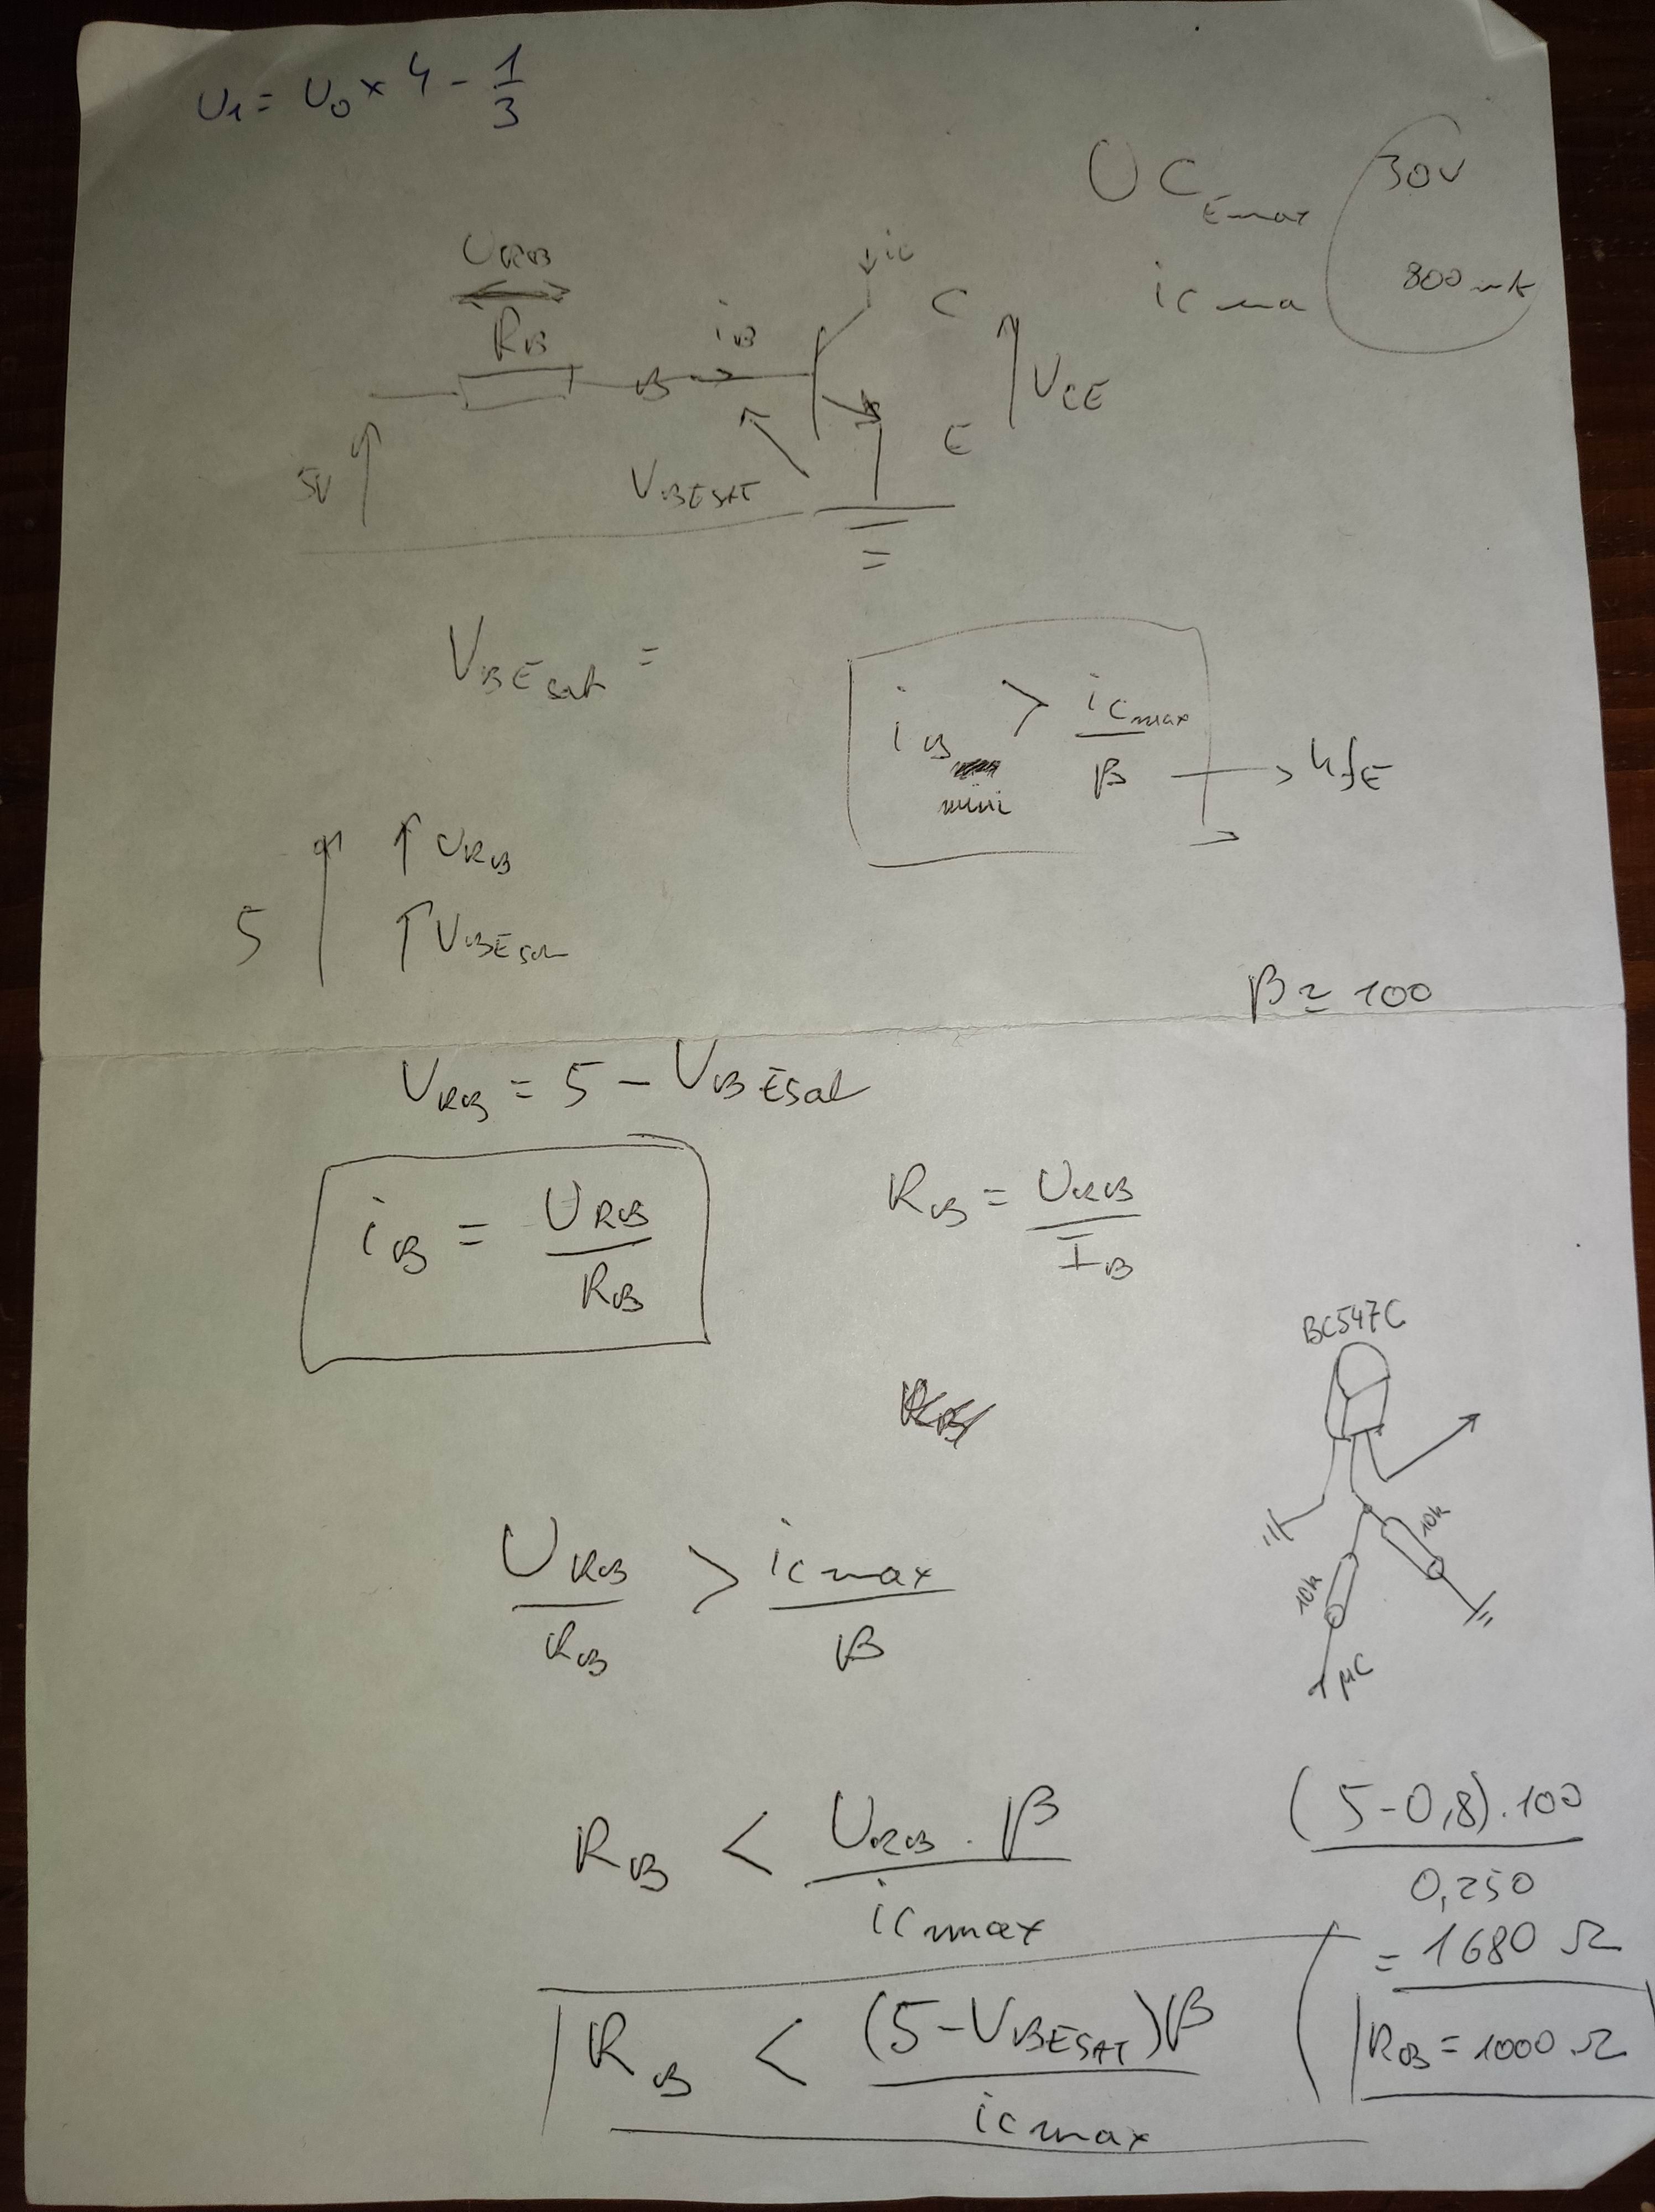 U1 = U0 × 4 - 1/3
UCEmax 30V
icma 800mA
URB
RB
B
iB
ic
C
E
VCE
5V
VBESAT
VBEsat =
iB mini > icmax / β → hfE
5
URB
VBEsat
β ≃ 100
URB = 5 - VBESat
iB = URB / RB
RB = URB / IB
BC547C
10k
10k
µC
URB / RB > icmax / β
RB < URB . β / icmax
(5-0,8).100 / 0,250
= 1680 Ω
RB < (5-VBESAT)β / icmax
RB = 1000 Ω